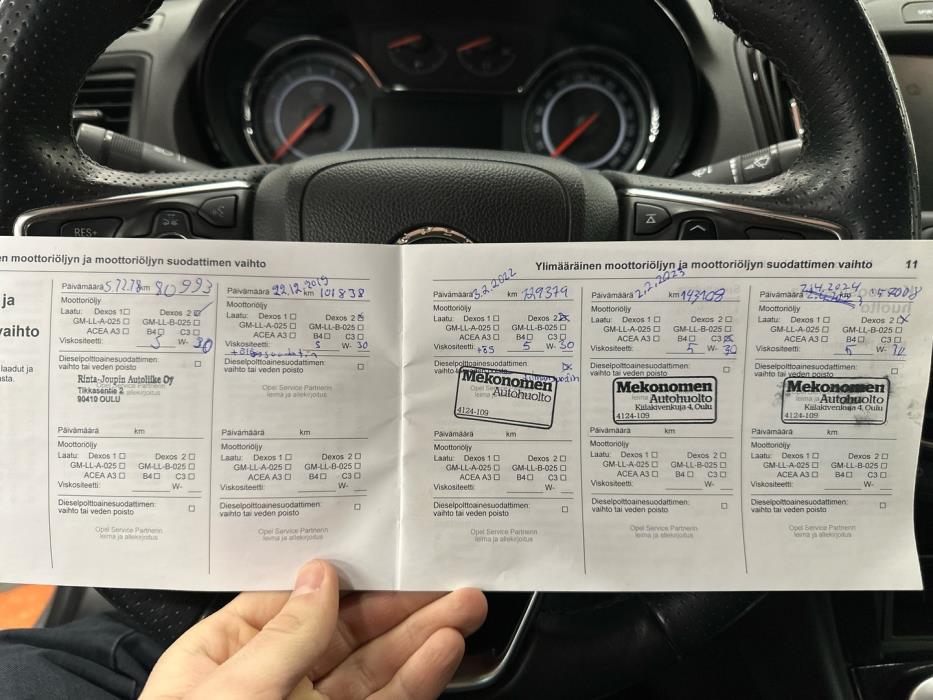 RES+
en moottoriöljyn ja moottoriöljyn suodattimen vaihto
ja
vaihto
laadut ja
sta.
Päivämäärä 5.7.2.18 km 80993
Moottoriöljy
Laatu: Dexos 1 ☐ Dexos 2 ☑
GM-LL-A-025 ☐ GM-LL-B-025 ☐
ACEA A3 ☐ B4 ☐ C3 ☐
Viskositeetti: 5 W- 30
Dieselpolttoainesuodattimen:
vaihto tai veden poisto ☐
Rinta-Joupin Autoliike Oy
Tikkasentie 2
90410 OULU
Päivämäärä km
Moottoriöljy
Laatu: Dexos 1 ☐ Dexos 2 ☐
GM-LL-A-025 ☐ GM-LL-B-025 ☐
ACEA A3 ☐ B4 ☐ C3 ☐
Viskositeetti: W-
Dieselpolttoainesuodattimen:
vaihto tai veden poisto ☐
Opel Service Partnerin
leima ja allekirjoitus
Päivämäärä 22.12.2019 km 101838
Moottoriöljy
Laatu: Dexos 1 ☐ Dexos 2 ☒
GM-LL-A-025 ☐ GM-LL-B-025 ☐
ACEA A3 ☐ B4 ☐ C3 ☐
Viskositeetti: 5 W- 30
Dieselpolttoainesuodattimen:
vaihto tai veden poisto ☐
Opel Service Partnerin
leima ja allekirjoitus
Päivämäärä km
Moottoriöljy
Laatu: Dexos 1 ☐ Dexos 2 ☐
GM-LL-A-025 ☐ GM-LL-B-025 ☐
ACEA A3 ☐ B4 ☐ C3 ☐
Viskositeetti: W-
Dieselpolttoainesuodattimen:
vaihto tai veden poisto ☐
Opel Service Partnerin
leima ja allekirjoitus
Ylimääräinen moottoriöljyn ja moottoriöljyn suodattimen vaihto 11
Päivämäärä 3.2.2022 km 129379
Moottoriöljy
Laatu: Dexos 1 ☐ Dexos 2 ☒
GM-LL-A-025 ☐ GM-LL-B-025 ☐
ACEA A3 ☐ B4 ☐ C3 ☐
Viskositeetti: 5 W- 30
+85
Dieselpolttoainesuodattimen:
vaihto tai veden poisto ☒
Mekonomen
Autohuolto
4124-109
Päivämäärä km
Moottoriöljy
Laatu: Dexos 1 ☐ Dexos 2 ☐
GM-LL-A-025 ☐ GM-LL-B-025 ☐
ACEA A3 ☐ B4 ☐ C3 ☐
Viskositeetti: W-
Dieselpolttoainesuodattimen:
vaihto tai veden poisto ☐
Opel Service Partnerin
leima ja allekirjoitus
Päivämäärä 2.2.2023 km 143108
Moottoriöljy
Laatu: Dexos 1 ☐ Dexos 2 ☐
GM-LL-A-025 ☐ GM-LL-B-025 ☐
ACEA A3 ☐ B4 ☐ C3 ☒
Viskositeetti: 5 W- 30
Dieselpolttoainesuodattimen:
vaihto tai veden poisto ☐
Mekonomen
Autohuolto
Kiilakivenkuja 4, Oulu
4124-109
Päivämäärä km
Moottoriöljy
Laatu: Dexos 1 ☐ Dexos 2 ☐
GM-LL-A-025 ☐ GM-LL-B-025 ☐
ACEA A3 ☐ B4 ☐ C3 ☐
Viskositeetti: W-
Dieselpolttoainesuodattimen:
vaihto tai veden poisto ☐
Opel Service Partnerin
leima ja allekirjoitus
Päivämäärä km
Moottoriöljy
Laatu: Dexos 1 ☐ Dexos 2 ☒
GM-LL-A-025 ☐ GM-LL-B-025 ☐
ACEA A3 ☐ B4 ☐ C3 ☐
Viskositeetti: 5 W-
Dieselpolttoainesuodattimen:
vaihto tai veden poisto ☐
Mekonomen
Autohuolto
Kiilakivenkuja 4, Oulu
4124-109
Päivämäärä km
Moottoriöljy
Laatu: Dexos 1 ☐ Dexos 2 ☐
GM-LL-A-025 ☐ GM-LL-B-025 ☐
ACEA A3 ☐ B4 ☐ C3 ☐
Viskositeetti: W-
Dieselpolttoainesuodattimen:
vaihto tai veden poisto ☐
Opel Service Partnerin
leima ja allekirjoitus